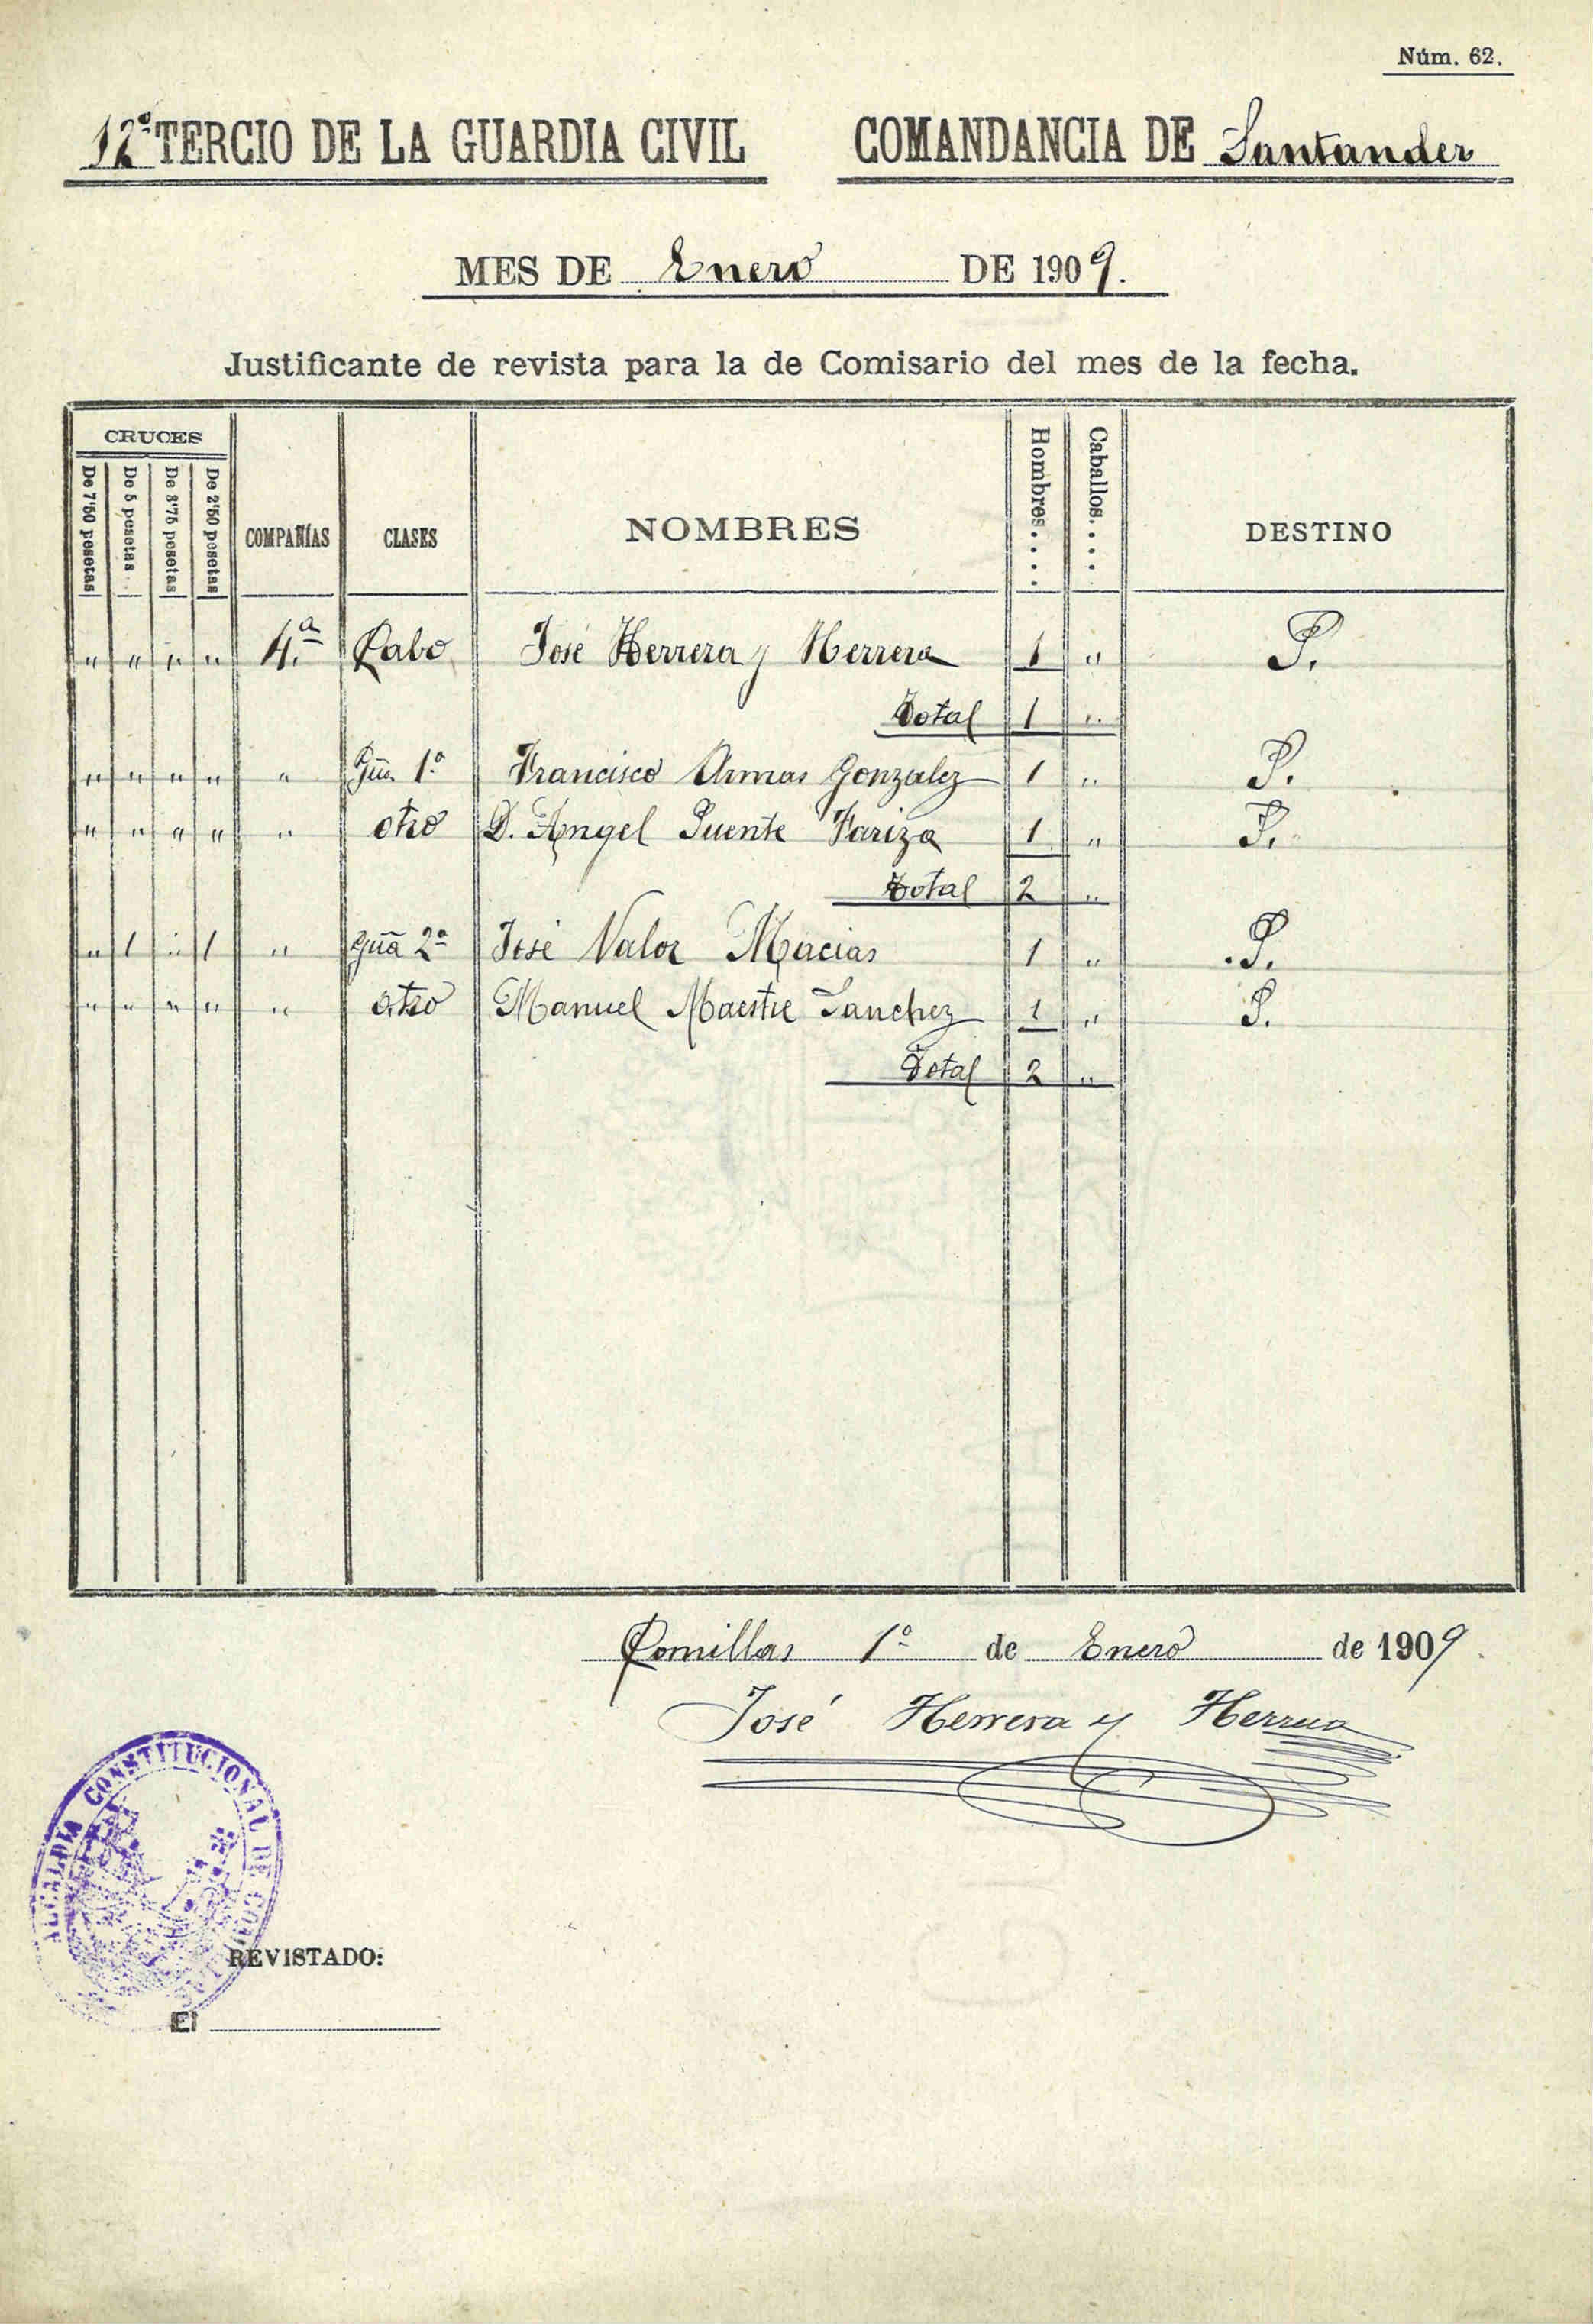 Núm. 62.
12º TERCIO DE LA GUARDIA CIVIL COMANDANCIA DE Santander
MES DE Enero DE 1909.
Justificante de revista para la de Comisario del mes de la fecha.
CRUCES
De 7'50 pesetas De 5 pesetas De 3'75 pesetas De 2'50 pesetas COMPAÑÍAS CLASES NOMBRES Hombres.... Caballos.... DESTINO
" " " " 4.ª Cabo José Herrera y Herrera 1 " P.
Total 1 "
" " " " " Gũa 1.º Francisco Armas Gonzalez 1 " P.
" " " " " otro D. Angel Puente Fariza 1 " P.
Total 2 "
" 1 " 1 " Gũa 2º José Valor Macias 1 " P.
" " " " " otro Manuel Maestre Sanchez 1 " P.
Total 2 "
Comillas 1º de Enero de 1909.
José Herrera y Herrera
ALCALDIA CONSTITUCIONAL DE
REVISTADO:
El